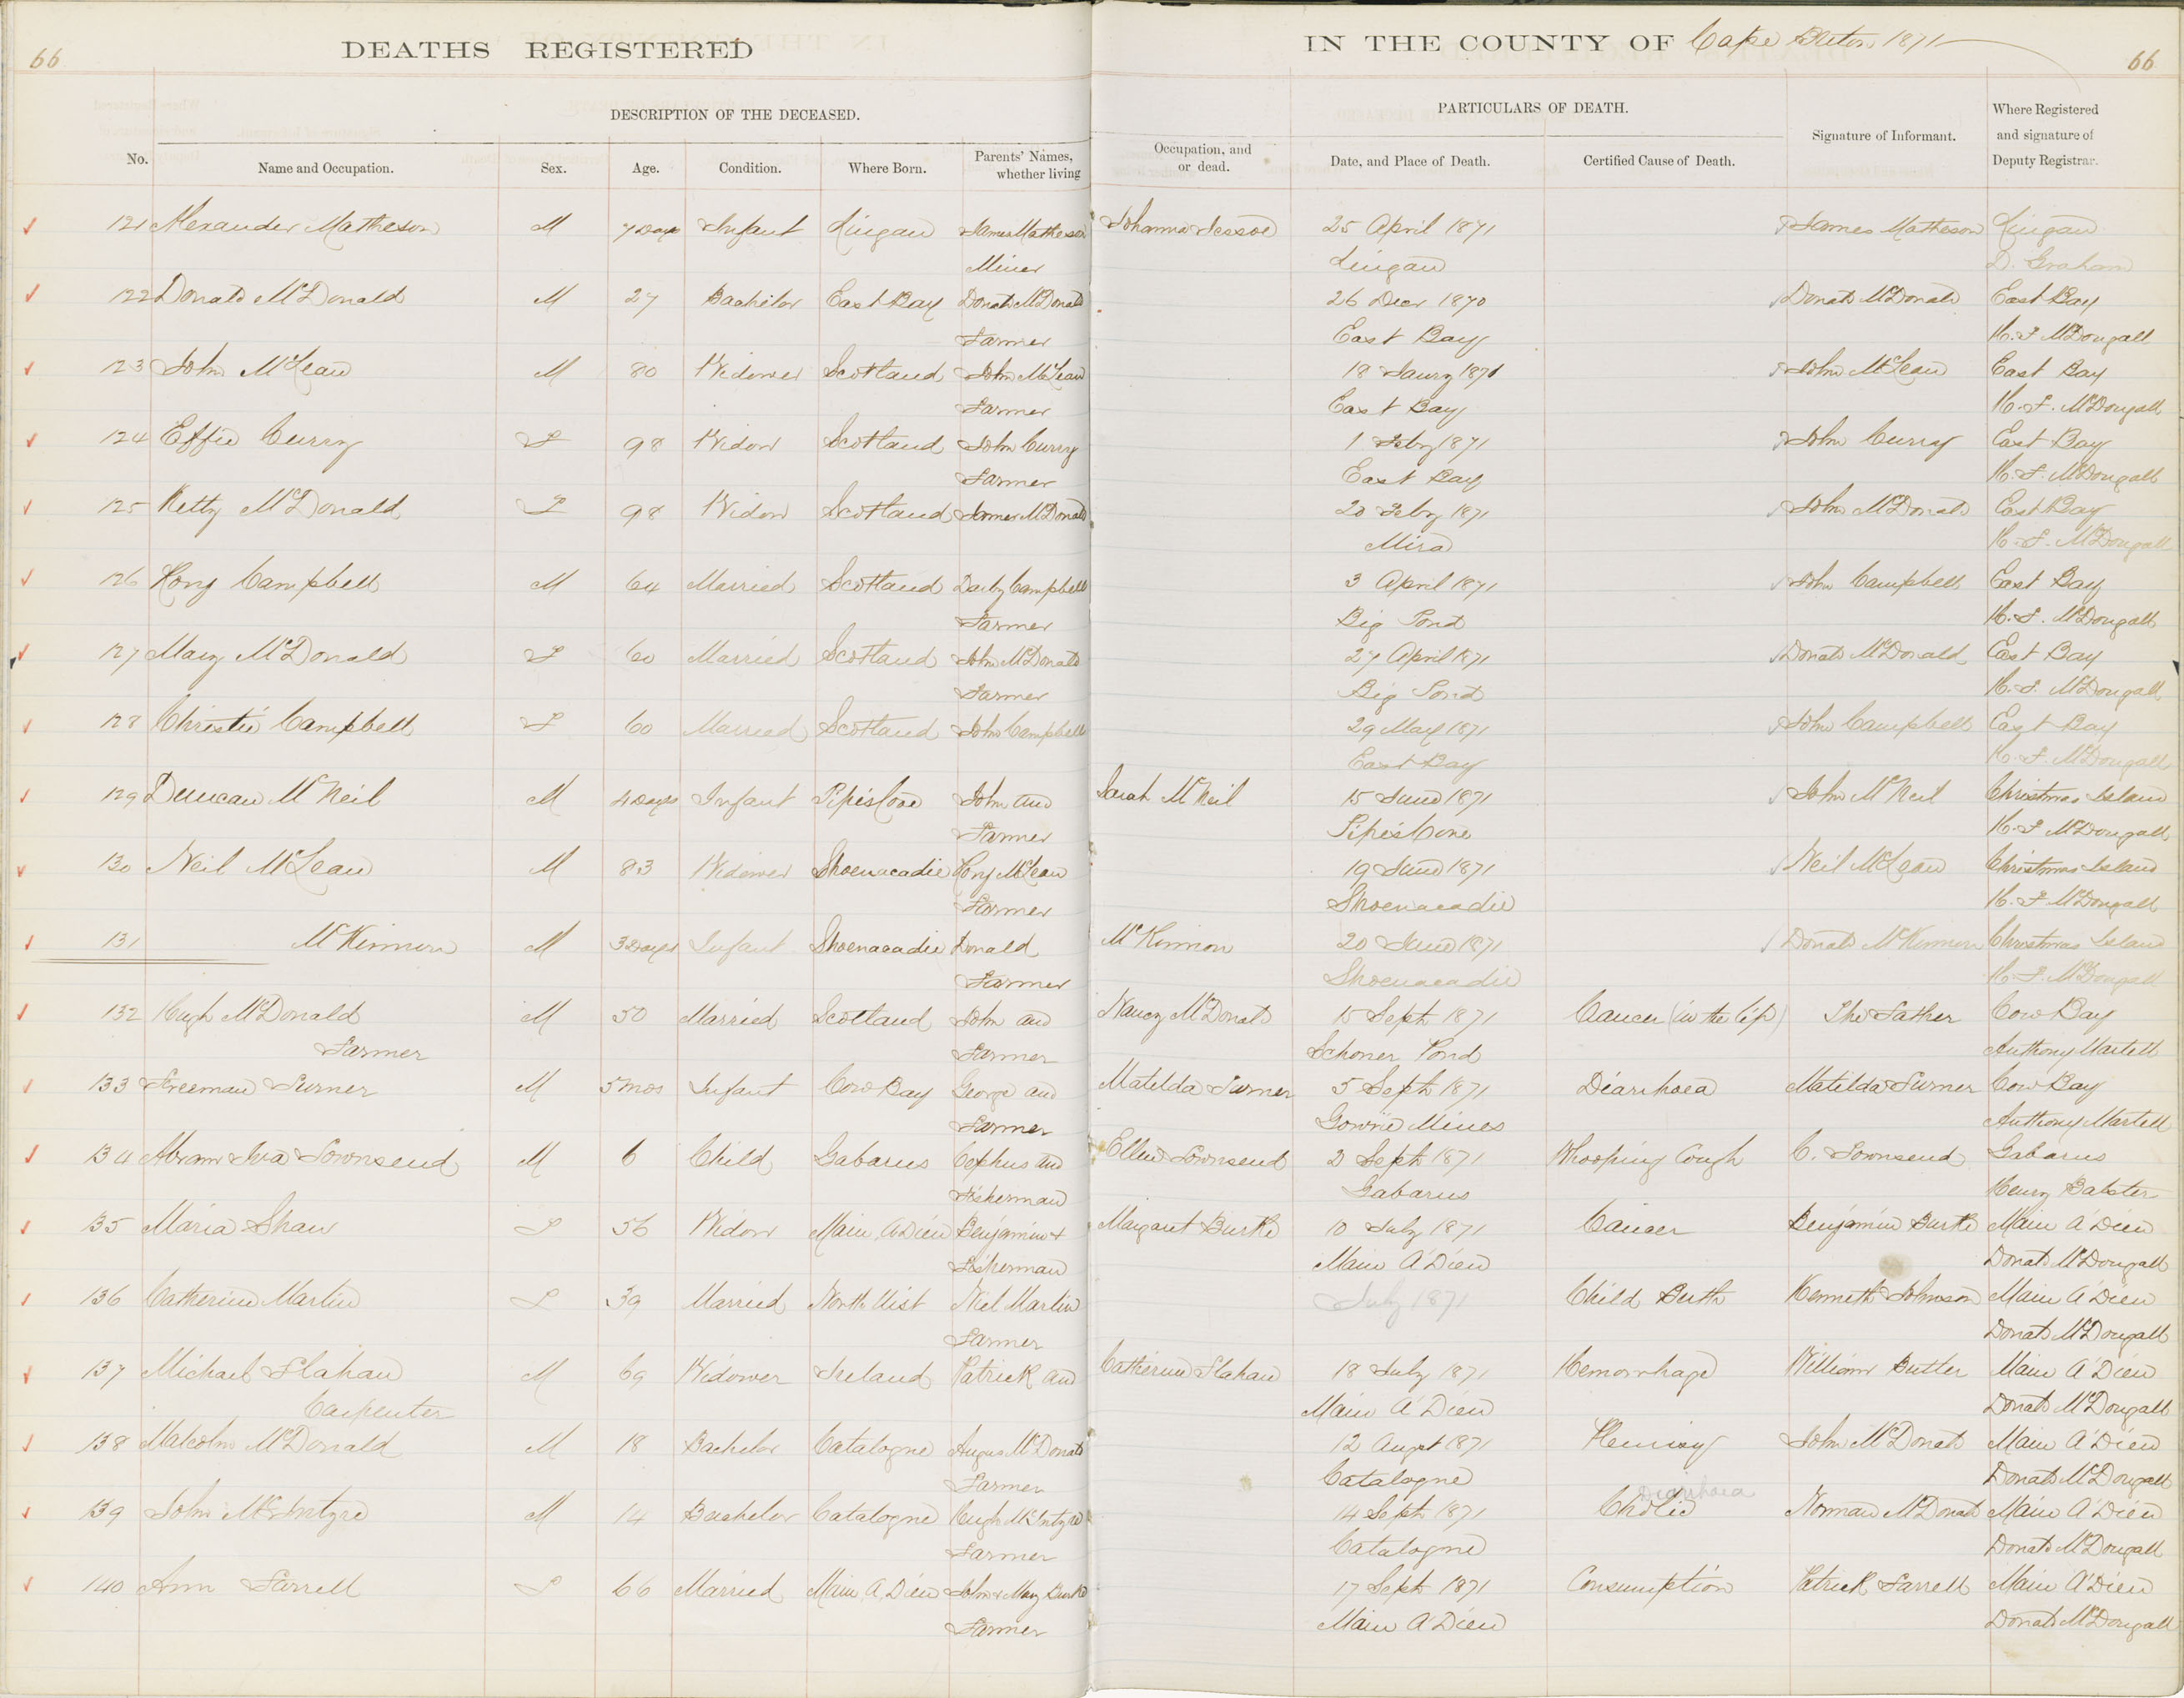 66 DEATHS REGISTERED IN THE COUNTY OF Cape Breton 1871 66
DESCRIPTION OF THE DECEASED. PARTICULARS OF DEATH. Signature of Informant. Where Registered and signature of Deputy Registrar.
No. Name and Occupation. Sex. Age. Condition. Where Born. Parents' Names, whether living Occupation, and or dead. Date, and Place of Death. Certified Cause of Death.
121 Alexander Matheson M 7 Days Infant Lingan James Matheson Johanna 25 April 1871 James Matheson Lingan
Miner Lingan D. Graham
122 Donald McDonald M 27 Bachelor East Bay Donald McDonald 26 Decr 1870 Donald McDonald East Bay
Farmer East Bay H. F. McDougall
123 John McLean M 80 Widower Scotland John McLean 18 Jaury 1871 John McLean East Bay
Farmer East Bay H. F. McDougall
124 Effie Curry F 98 Widow Scotland John Curry 1 Feby 1871 John Curry East Bay
Farmer East Bay H. F. McDougall
125 Ketty McDonald F 98 Widow Scotland James McDonald 20 Feby 1871 John McDonald East Bay
Mira H. F. McDougall
126 Rory Campbell M 64 Married Scotland Campbell 3 April 1871 John Campbell East Bay
Farmer Big Pond H. F. McDougall
127 Mary McDonald F 60 Married Scotland John McDonald 27 April 1871 Donald McDonald East Bay
Farmer Big Pond H. F. McDougall
128 Christie Campbell F 60 Married Scotland John Campbell 29 May 1871 John Campbell East Bay
East Bay H. F. McDougall
129 Duncan McNeil M 4 Days Infant Pipers Cove John and Sarah McNeil 15 June 1871 John McNeil Christmas Island
Farmer Pipers Cove H. F. McDougall
130 Neil McLean M 83 Widower Shoenacadie Rory McLean 19 June 1871 Neil McLean Christmas Island
Farmer Shoenacadie H. F. McDougall
131 McKinnon M 3 Days Infant Shoenacadie Donald McKinnon 20 June 1871 Donald McKinnon Christmas Island
Farmer Shoenacadie H. F. McDougall
132 Hugh McDonald M 50 Married Scotland John and Nancy McDonald 15 Sept 1871 Cancer (in the lip) The Father Cow Bay
Farmer Farmer Schoner Pond Anthony Martell
133 Freeman Turner M 5 mos Infant Cow Bay George and Matilda Turner 5 Sept 1871 Diarrhoea Matilda Turner Cow Bay
Farmer Gowrie Mines Anthony Martell
134 Abram Ira Townsend M 6 Child Gabarus Cephus and Ellen Townsend 2 Sept 1871 Whooping Cough C. Townsend Gabarus
Fisherman Gabarus Henry
135 Maria Shaw F 56 Widow Main A Dieu Benjamin + Margaret Burke 10 July 1871 Cancer Benjamin Burke Main A Dieu
Fisherman Main A Dieu Donald McDougall
136 Catherine Martin F 39 Married North Uist Niel Martin July 1871 Child Birth Kenneth Johnson Main A Dieu
Farmer Donald McDougall
137 Michael Flahan M 69 Widower Ireland Patrick and Catherine Flahan 18 July 1871 Hemorrhage William Butler Main A Dieu
Carpenter Main A Dieu Donald McDougall
138 Malcolm McDonald M 18 Bachelor Catalogne Angus McDonald 12 Augst 1871 Pleurisy John McDonald Main A Dieu
Farmer Catalogne Donald McDougall
Diarrhoea
139 John McIntyre M 14 Bachelor Catalogne Hugh McIntyre 14 Sept 1871 Cholic Norman McDonald Main A Dieu
Farmer Catalogne Donald McDougall
140 Ann Farrell F 66 Married Main A Dieu John & Mary Burke 17 Sept 1871 Consumption Patrick Farrell Main A Dieu
Farmer Main A Dieu Donald McDougall